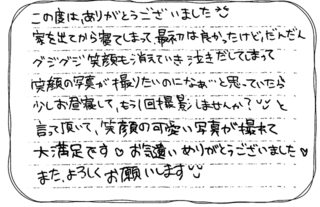 この度は、ありがとうございました
家を出てから寝てしまって最初は良かったけど、だんだん
グジグジ笑顔も消えていき泣きだしてしまって
笑顔の写真が撮りたいのになぁ…と思っていたら
少しお昼寝して、もう1回撮影しませんか？と
言って頂いて、笑顔の可愛い写真が撮れて
大満足です♡お気遣いありがとうございました♡
また、よろしくお願いします